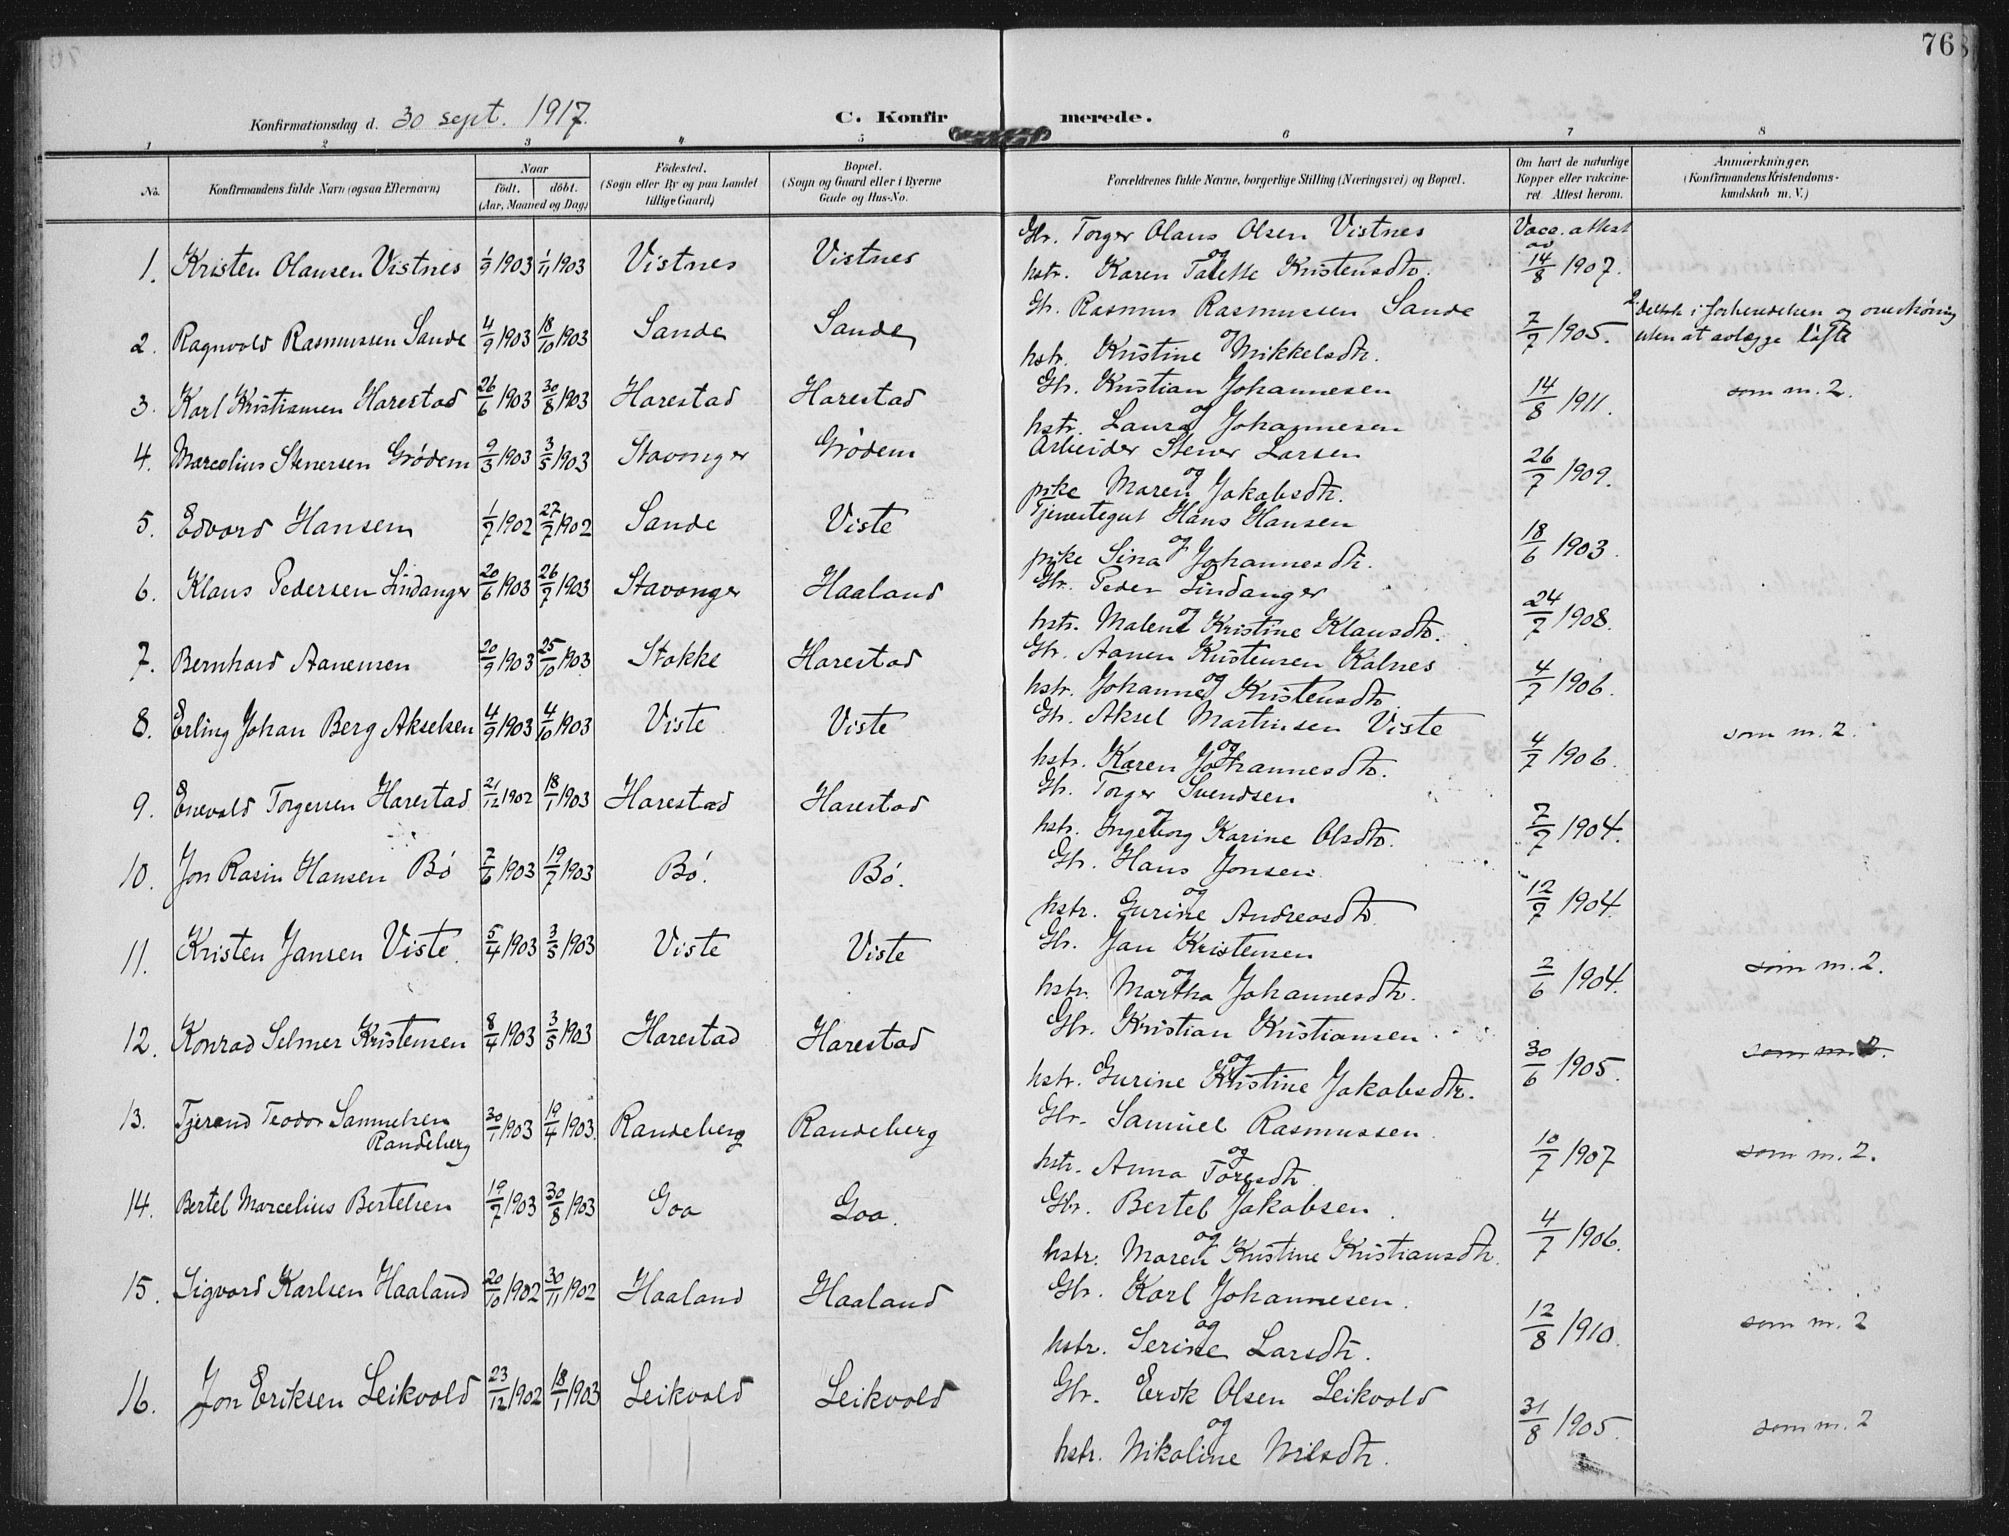 76
Konfirmationsdag d. 30 sept. 1917.
C. Konfirmerede.
1 2 3 4 5 6 7 8
No.
Konfirmandens fulde Navn (ogsaa Efternavn)
Naar
født. döbt.
(Aar, Maaned og Dag)
Födested.
(Sogn eller By og paa Landet
tillige Gaard)
Bopæl.
(Sogn og Gaard eller i Byerne
Gade og Hus-No.
Forældrenes fulde Navne, borgerlige Stilling (Næringsvei) og Bopæl.
Om havt de naturlige
Kopper eller vakcine-
ret. Attest herom.
Anmærkninger.
(Konfirmandens Kristendoms-
kundskab m. V.)
1. Kristen Olausen Vistnes 1/9 1903 1/11 1903 Vistnes Vistnes Gbr. Torger Olaus Olsen Vistnes Vacc. attest
og hstr. Karen Talette Kristensdtr. av 14/8 1907.
2. Ragnvald Rasmussen Sande 4/9 1903 18/10 1903 Sande Sande Gbr. Rasmus Rasmussen Sande 7/7 1905. 2. deltok i forberedelsen og overhøring
og hstr. Kristine Mikkelsdtr. uten at avlægge løfte
3. Karl Kristiansen Harestad 26/6 1903 30/8 1903 Harestad Harestad Gbr. Kristian Johannesen 14/8 1911. som m. 2.
og hstr. Laura Johannesen
4. Marcelius Stenersen Grødem 9/3 1903 3/5 1903 Stavanger Grødem Arbeider Stener Larsen 26/7 1909.
og pike Maren Jakobsdtr.
5. Edvard Hansen 1/7 1902 27/7 1902 Sande Viste Tjenestegut Hans Hansen 18/6 1903.
og pike Sina Johannesdtr.
6. Klaus Pedersen Lindanger 20/6 1903 26/7 1903 Stavanger Haaland Gbr. Peder Lindanger 24/7 1908.
og hstr. Malene Kristine Klausdtr.
7. Bernhard Aanensen 20/9 1903 25/10 1903. Stokke Harestad Gbr. Aanen Kristensen Kalnes 4/7 1906.
og hstr. Johanne Kristensdtr.
8. Erling Johan Berg Akselsen 4/9 1903 4/10 1903 Viste Viste Gbr. Aksel Martinsen Viste 4/7 1906. som m. 2.
og hstr. Karen Johannesdtr.
9. Enevald Torgersen Harestad 21/12 1902 18/1 1903 Harestad Harestad Gbr. Torger Svendsen 7/7 1904.
og hstr. Ingeborg Karine Olsdtr.
10. Jon Rasin Hansen Bø 7/6 1903 19/7 1903 Bø. Bø. Gbr. Hans Jonsen 12/7 1904.
og hstr. Gurine Andreasdtr.
11. Kristen Jansen Viste. 5/4 1903 3/5 1903 Viste Viste Gbr. Jan Kristensen 2/6 1904. som m. 2.
og hstr. Martha Johannesdtr.
12. Konrad Selmer Kristensen 8/4 1903 3/5 1903 Harestad Harestad Gbr. Kristian Kristiansen 30/6 1905. som m. 2.
og hstr. Gurine Kristine Jakobsdtr.
13. Tjerand Teodor Samuelsen Randeberg 30/1 1903 19/4 1903. Randeberg Randeberg Gbr. Samuel Rasmussen 10/7 1907 som m. 2.
og hstr. Anna Toresdtr.
14. Bertel Marcelius Bertelsen 19/7 1903 30/8 1903 Goa Goa. Gbr. Bertel Jakobsen. 4/7 1906.
og hstr. Maren Kristine Kristiansdtr.
15. Sigvard Karlsen Haaland 20/10 1902 30/11 1902 Haaland Haaland Gbr. Karl Johannesen. 12/8 1910. som m. 2
og hstr. Serine Larsdtr.
16. Jon Eriksen Leikvold 23/12 1902 18/1 1903 Leikvold Leikvold Gbr. Erik Olsen Leikvold 31/8 1905. som m. 2
og hstr. Nikoline Nilsdtr.